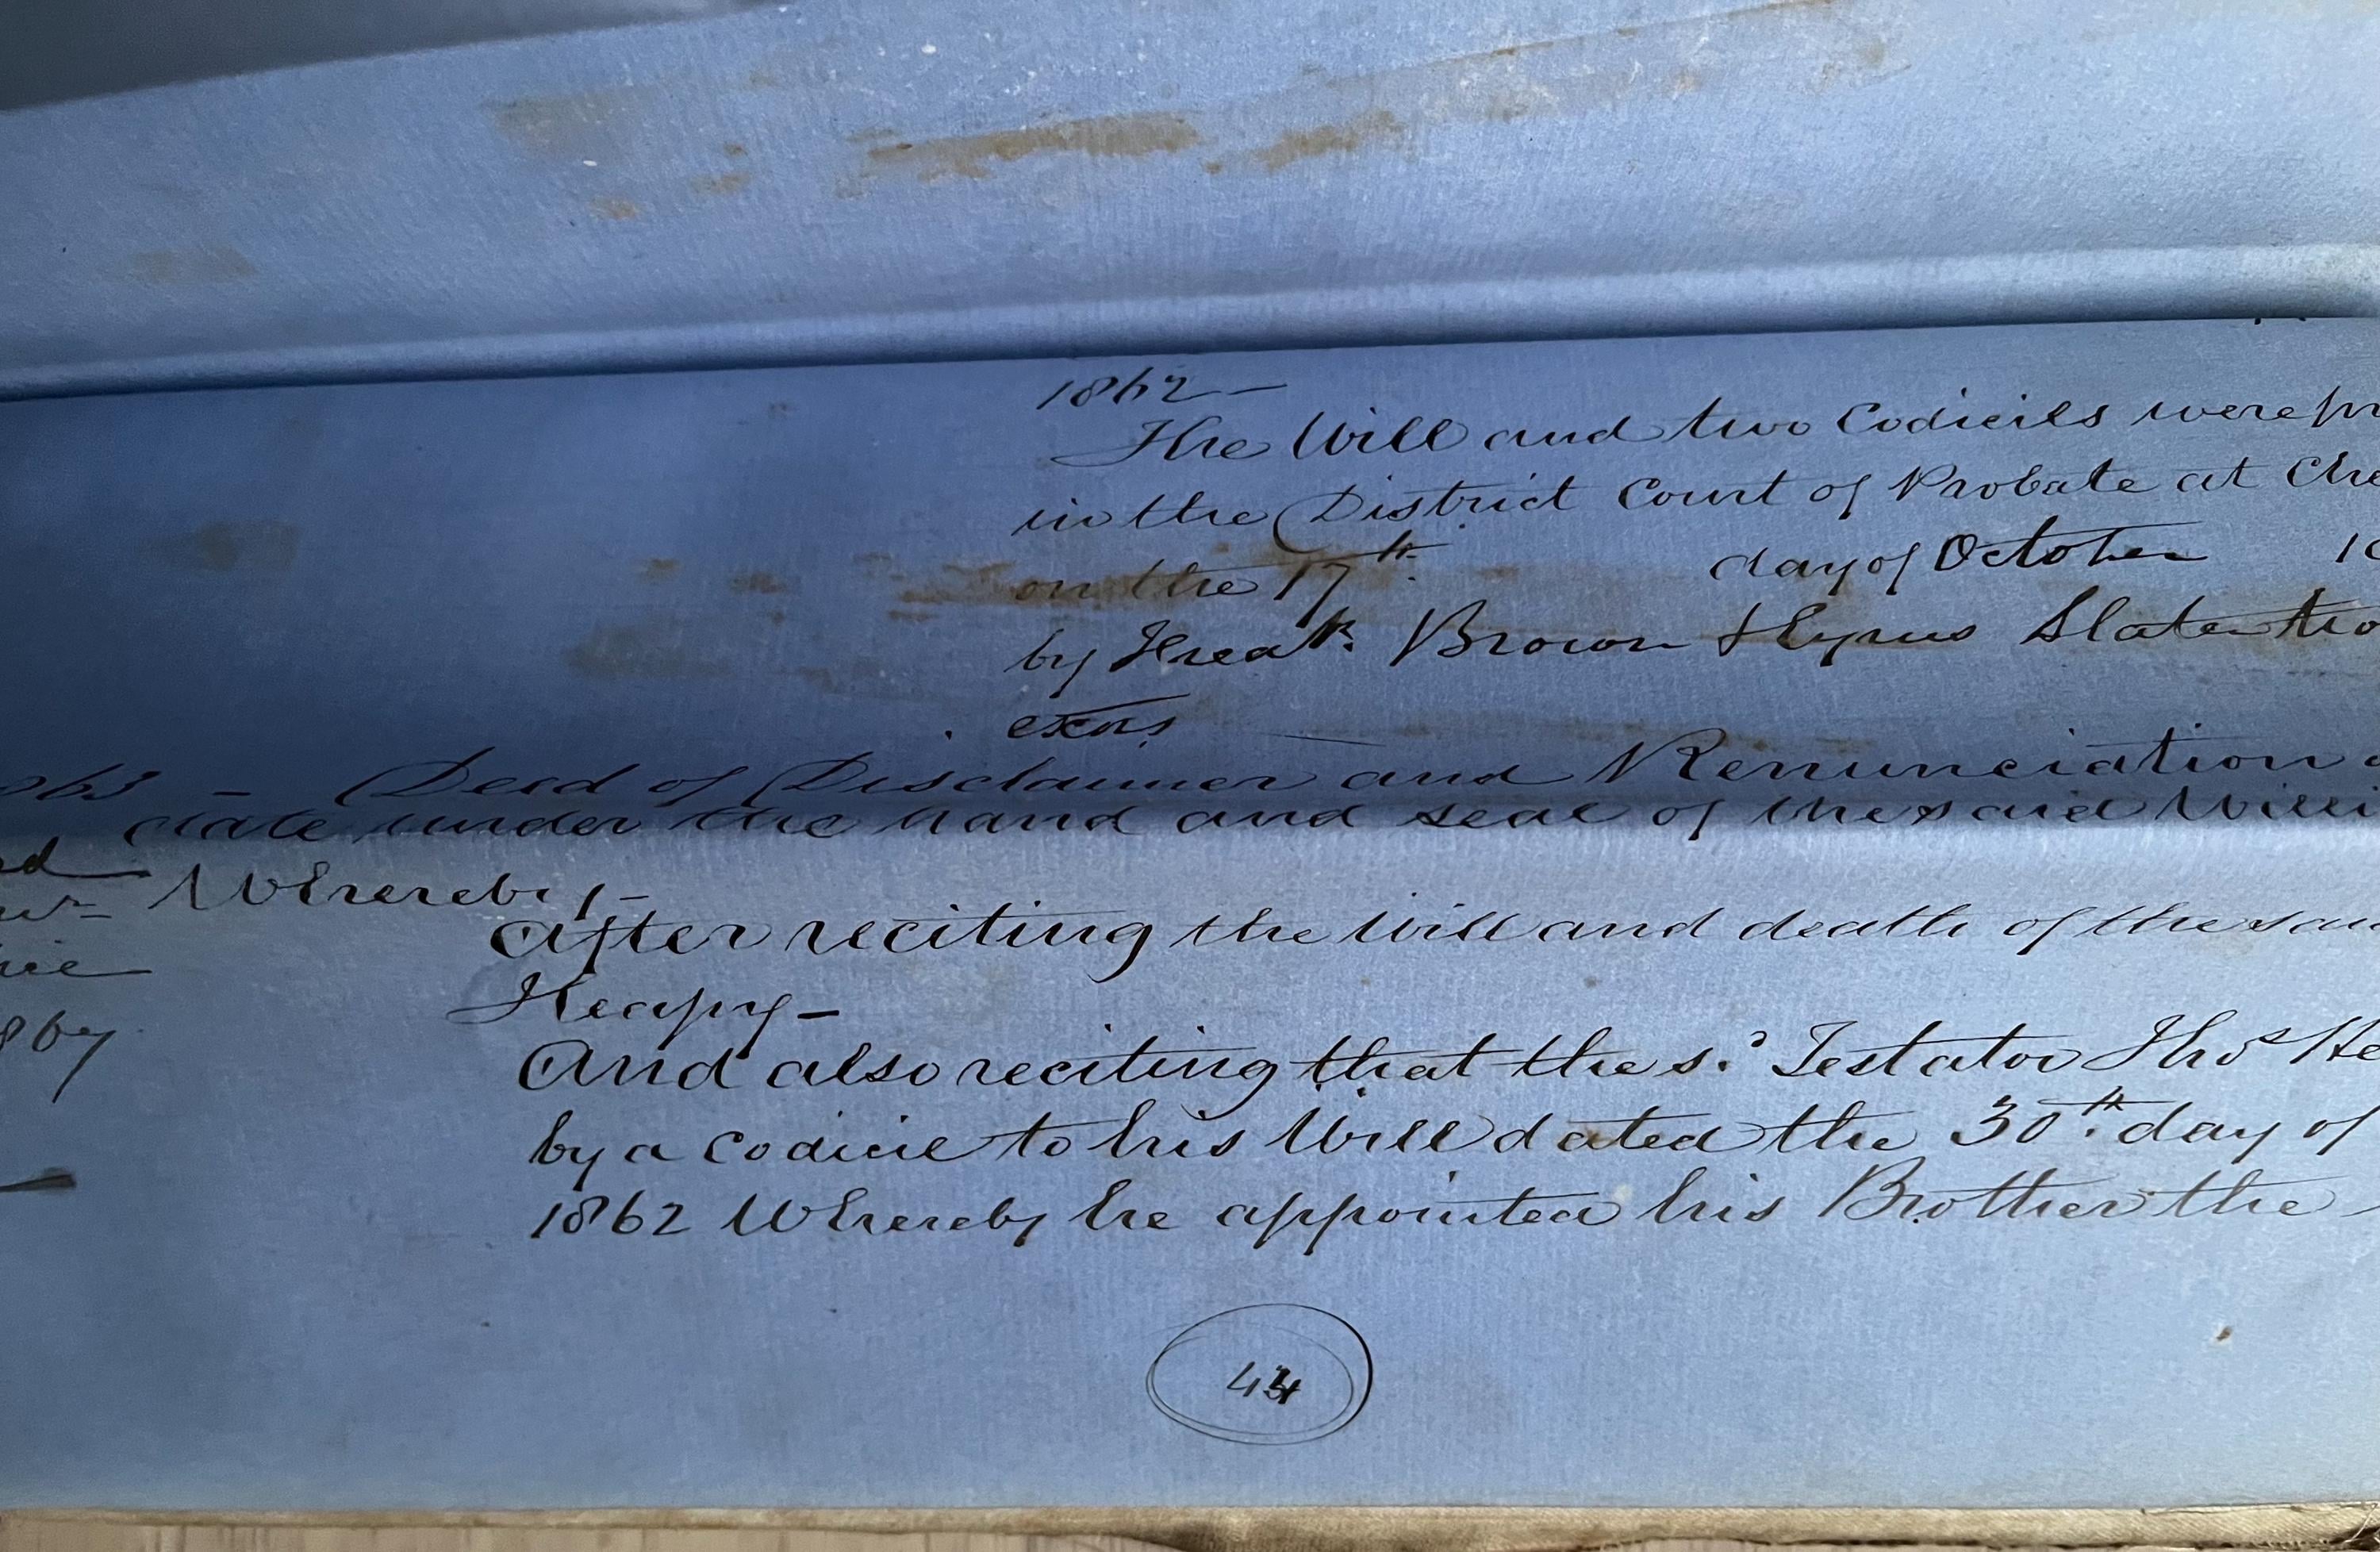 1862 —
The Will and two Codicils were pr
in the District Court of Probate at Che
on the 17th day of October 18
by Brown & Cyrus Slater two
exors
863 – Deed of Disclaimer and Renunciation
date under the hand and seal of the said Willi
Whereby –
867
after reciting the Will and death of the sai
Heapy –
And also reciting that the sd Testator Thos He
by a codicil to his Will dated the 30th day of
1862 Whereby he appointed his Brother the
44